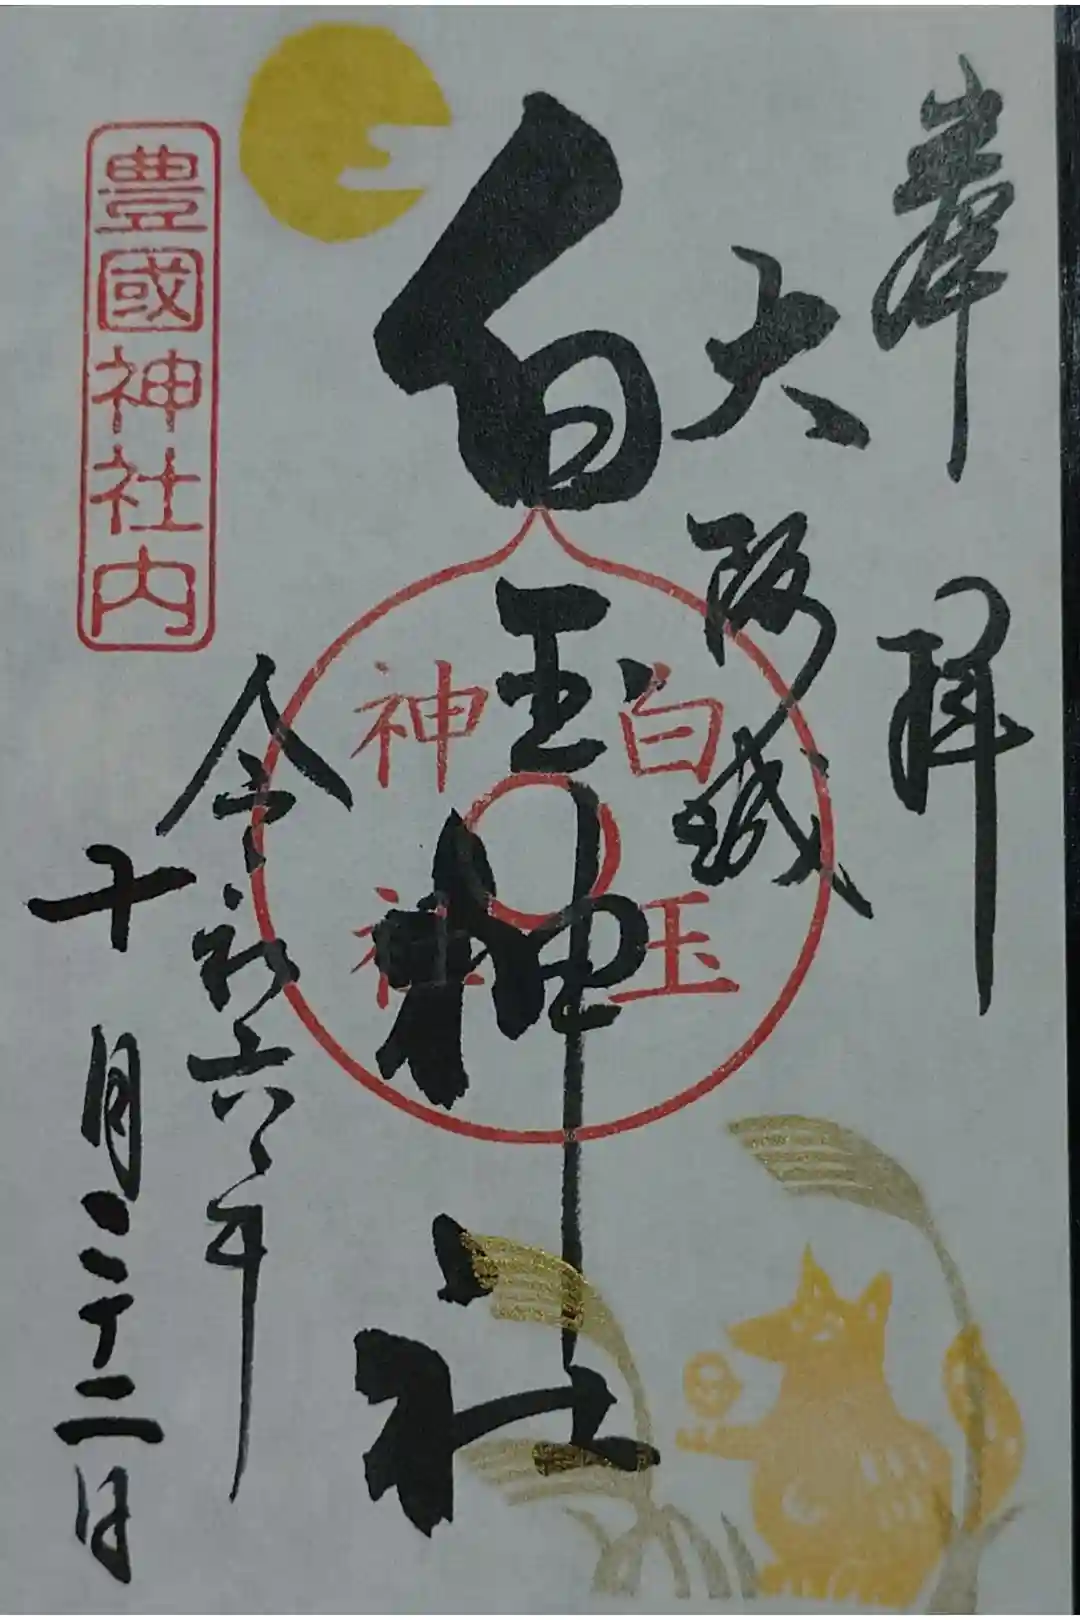 奉拝
大阪城
白玉神社
白玉
神社
令和六年
十月二十二日
豊國神社内